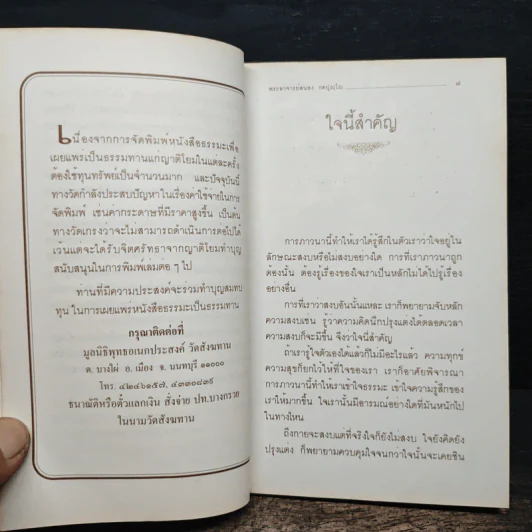 เนื่องจากการจัดพิมพ์หนังสือธรรมะเพื่อ
เผยแพร่เป็นธรรมทานแก่ญาติโยมในแต่ละครั้ง
ต้องใช้ทุนทรัพย์เป็นจำนวนมาก และปัจจุบันนี้
ทางวัดกำลังประสบปัญหาในเรื่องค่าใช้จ่ายในการ
จัดพิมพ์ เช่นค่ากระดาษที่มีราคาสูงขึ้น เป็นต้น
ทางวัดเกรงว่าจะไม่สามารถดำเนินการต่อไปได้
เว้นแต่จะได้รับจิตศรัทธาจากญาติโยมทำบุญ
สนับสนุนในการพิมพ์เล่มต่อ ๆ ไป
ท่านที่มีความประสงค์จะร่วมทำบุญสมทบ
ทุน ในการเผยแพร่หนังสือธรรมะเป็นธรรมทาน
กรุณาติดต่อที่
มูลนิธิพุทธอเนกประสงค์ วัดสังฆทาน
ต. บางไผ่ อ. เมือง จ. นนทบุรี ๑๑๐๐๐
โทร.
ธนาณัติหรือตั๋วแลกเงิน สั่งจ่าย ปท.บางกรวย
ในนามวัดสังฆทาน
พระอาจารย์สนอง กตปุญฺโญ
ใจนี้สำคัญ
การภาวนานี้ทำให้เราได้รู้สึกในตัวเราว่าใจอยู่ใน
ลักษณะสงบหรือไม่สงบอย่างใด การที่เราภาวนาถูก
ต้องนั้น ต้องรู้เรื่องของใจเราเป็นหลักไม่ได้ไปรู้เรื่อง
อย่างอื่น
การที่เราว่าสงบอันนั้นแหละ เราก็พยายามจับหลัก
ความสงบเช่น รู้ว่าความคิดนึกปรุงแต่งได้ตลอดเวลา
ความสงบก็จะมีขึ้น จึงว่าใจนี้สำคัญ
ถ้าเรารู้ใจตัวเองได้แล้วก็ไม่มีอะไรแล้ว ความทุกข์
ความสุขก็ยกไว้ให้ที่ใจของเรา เราก็อาศัยพิจารณา
การภาวนานี้ทำให้เราเข้าใจธรรมะ เข้าใจความรู้สึกของ
เราให้มากขึ้น ใจเรานั้นมีอารมณ์อย่างใดที่มันหนักไป
ในทางไหน
ถึงกายจะสงบแต่ที่จริงใจก็ยังไม่สงบ ใจยังคิดยัง
ปรุงแต่ง ก็พยายามควบคุมใจจนกว่าใจนั้นจะเคยชิน